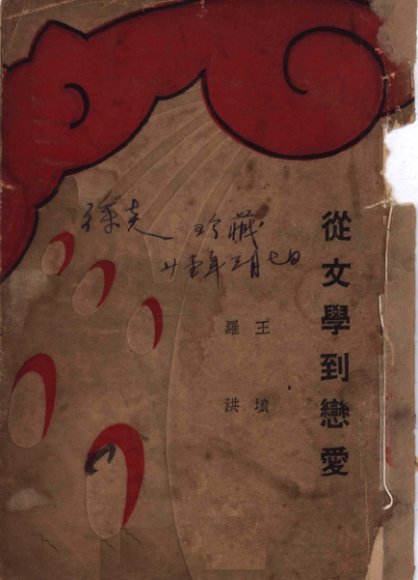 從文學到戀愛
王墳
羅洪
珍藏
廿壹年三月七日